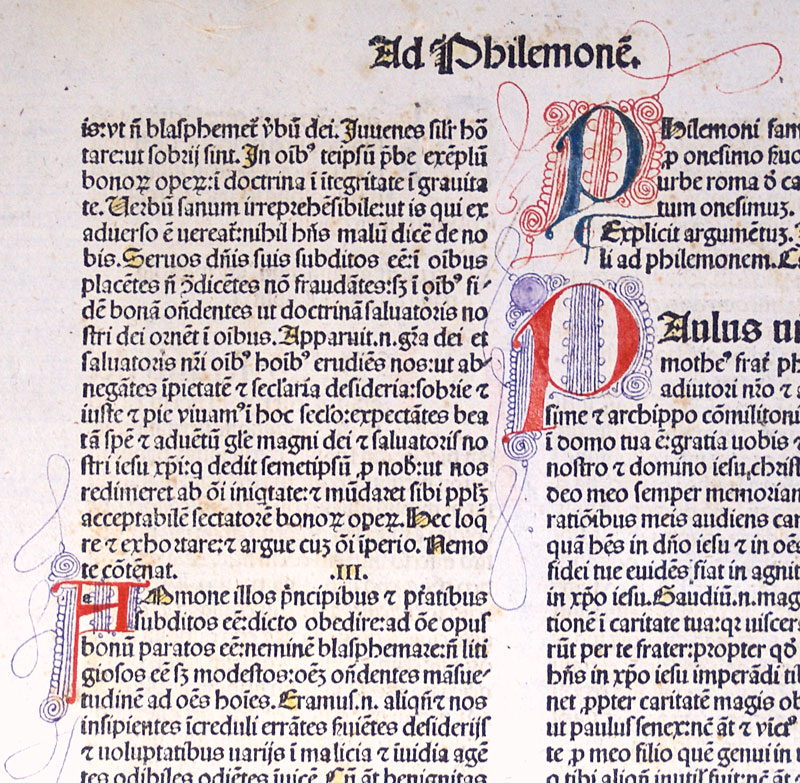 Ad Philemonē.
is:vt ñ blasphemet᷑ v̄bū dei. Juuenes silr hō
tare:ut sobrij sint. In oībꝰ teipsū p̄be exēplū
bonoꝝ opeꝝ:ī doctrina ī ītegritate ī grauita
te. Uerbū sanum irreprehēsibile:ut is qui ex
aduerso ē uereat᷑:nihil hñs malū dicē de no
bis. Seruos dñis suis subditos eē:ī oībus
placētes ñ ꝯdicētes nō fraudātes:sꝫ ī oībꝰ fi-
dē bonā oñdentes ut doctrinā saluatoris no
stri dei ornēt ī oībus. Apparuit.n.gr̄a dei et
saluatoris nr̄i oībꝰ hoībꝰ erudiēs nos:ut ab-
negātes īpietatē ⁊ seclaria desideria:sobrie ⁊
iuste ⁊ pie viuamꝰ ī hoc seclo:expectātes bea
tā spē ⁊ aduētū gl̄e magni dei ⁊ saluatoris no
stri iesu xp̄i:q dedit semetipsū ꝓ nob̄:ut nos
redimeret ab oī iniqtate:⁊ mūdaret sibi pplꝫ
acceptabilē sectatorē bonoꝝ opeꝝ. Hec loq̄
re ⁊ exhortare:⁊ argue cuꝫ ōi īperio. Nemo
te cōtēnat. .III.
ADmone illos p̄ncipibus ⁊ p̄tatibus
subditos eē:dicto obedire:ad ōe opus
bonū paratos eē:neminē blasphemare:ñ liti
giosos eē sꝫ modestos:oēꝫ oñdentes māsue-
tudinē ad oēs hoīes. Eramus.n. aliqñ ⁊ nos
insipientes īcreduli errātes ſuiētes desiderijs
⁊ uoluptatibus uarijs ī malicia ⁊ īuidia agē
tes odibiles odiētes īuicē. Cū āt benignitas
PHilemoni fam
ꝓ onesimo
urbe roma ca
tum onesimuꝫ.
Explicit argumētuꝫ.
li ad philemonem.
PAulus
motheꝰ frat᷑
adiutori nr̄o ⁊
sime ⁊ archippo cōmilitoni
ī domo tua ē:gratia uobis ⁊
nostro ⁊ domino iesu christ
deo meo semper memoriam
ratiōibus meis audiens car
quā hēs in dño iesu ⁊ in oēs
fidei tue euidēs fiat in agnit
in xp̄o iesu. Gaudiū.n.mag
tionē ī caritate tua:qꝛ uiscer
rūt per te frater:propter qđ
hñs in xp̄o iesu imperādi tib
net ꝓpter caritatē magis ob
ut paulus senex:nc̄ āt ⁊ vīctꝰ
te ꝓ meo filio quē genui in
q tibi aliqñ inutil' fuit:nc̄ āt